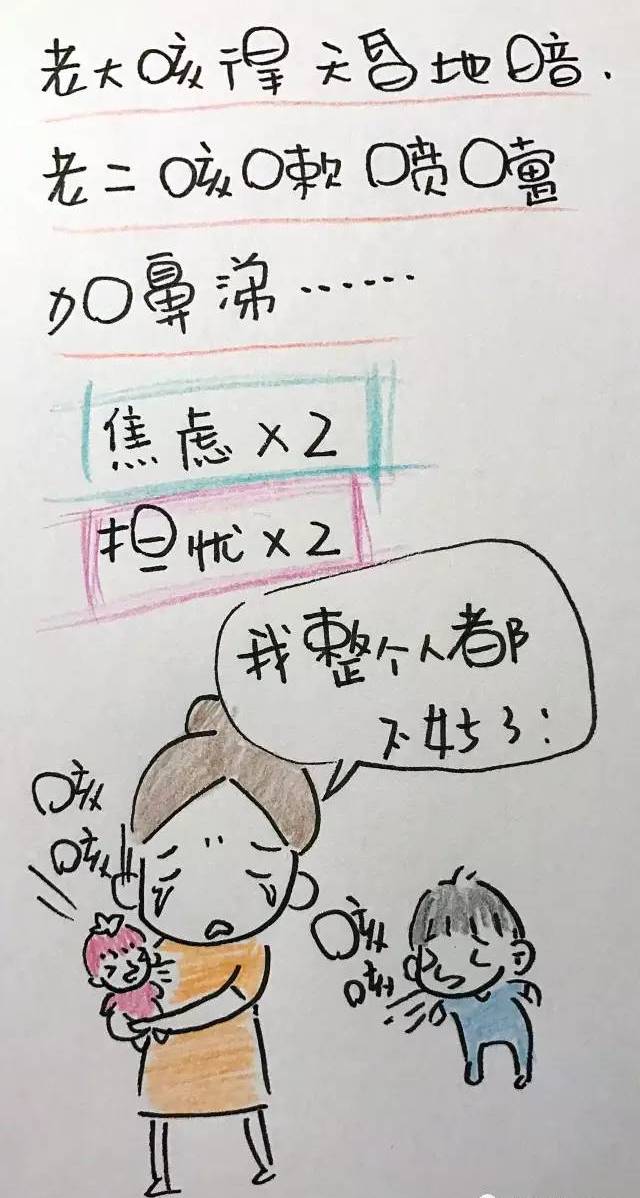 老大咳得天昏地暗.
老二咳嗽喷嚏
加鼻涕……
焦虑×2
担忧×2
我整个人都
不好了:
咳
咳
咳
咳